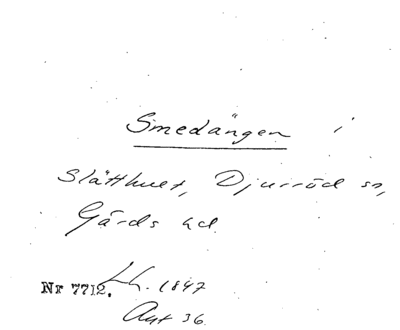 Smedängen i
Slätthult, Djurröd sn,
Gärds hd.
Nr 7712. 1847
Akt 36.